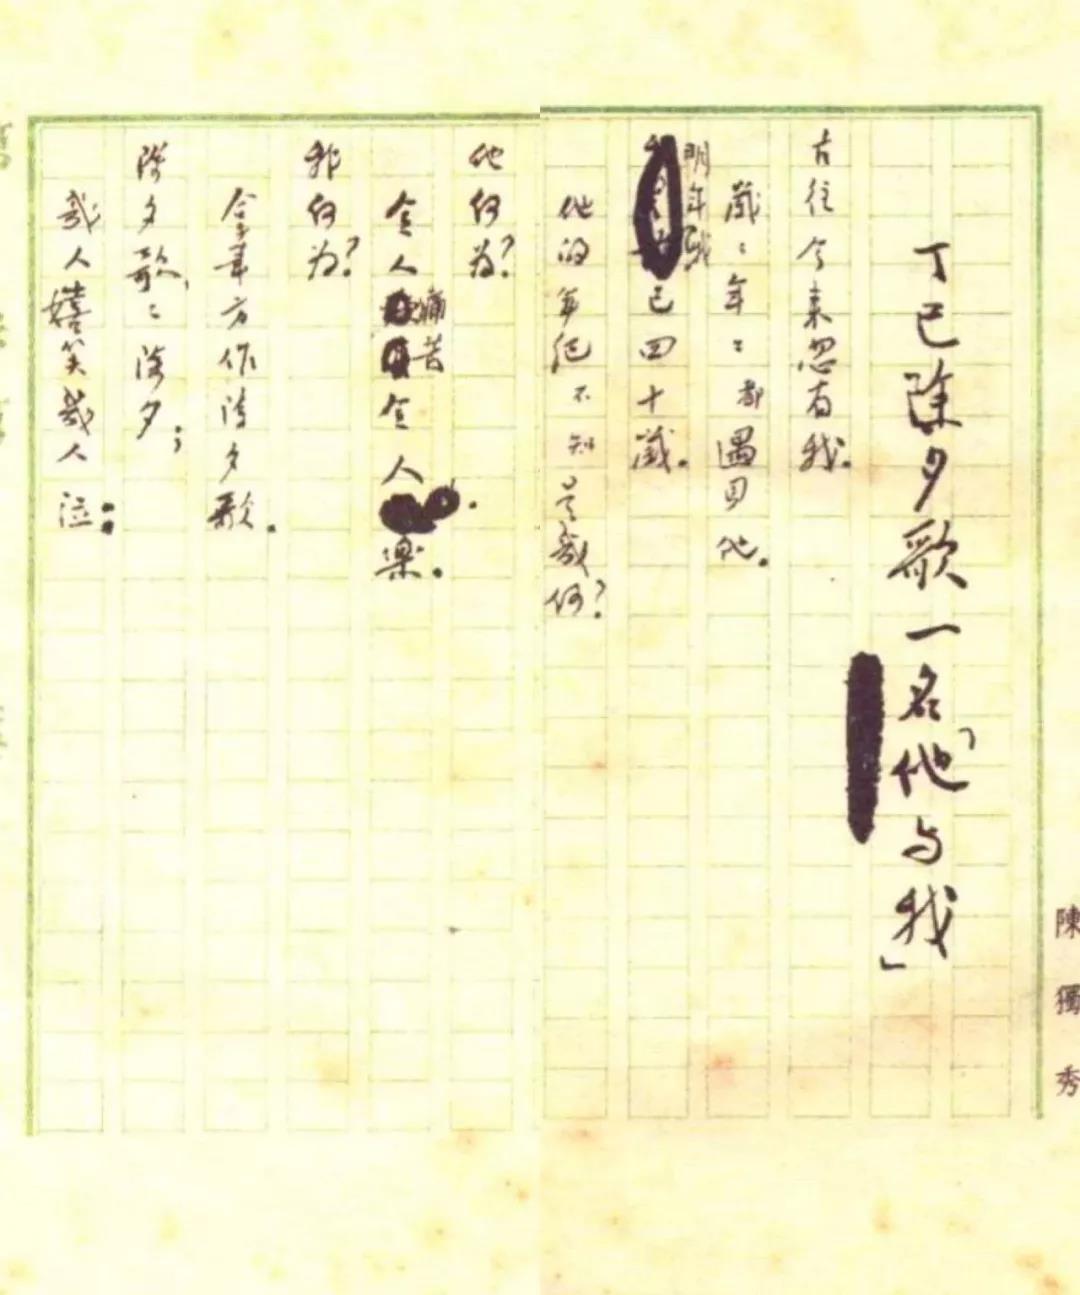 陳獨秀
丁巳除夕歌一名「他与我」
古往今來忽有我。
歲〻年〻都遇見他。
明年我已四十歲。
他的年紀不知是幾何?
他何为?
令人痛苦令人樂。
我何为?
拿筆方作除夕歌。
除夕歌,〻除夕;
幾人嬉笑幾人泣: